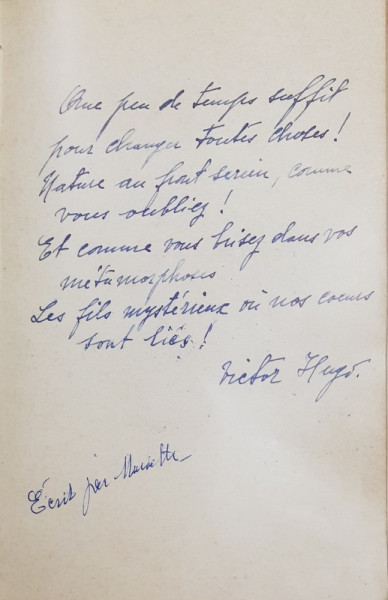 Que peu de temps suffit
pour changer toutes choses!
Nature au front serein, comme
vous oubliez!
Et comme vous brisez dans vos
métamorphoses
Les fils mystérieux où nos coeurs
sont liés!
Victor Hugo.
Écrit par